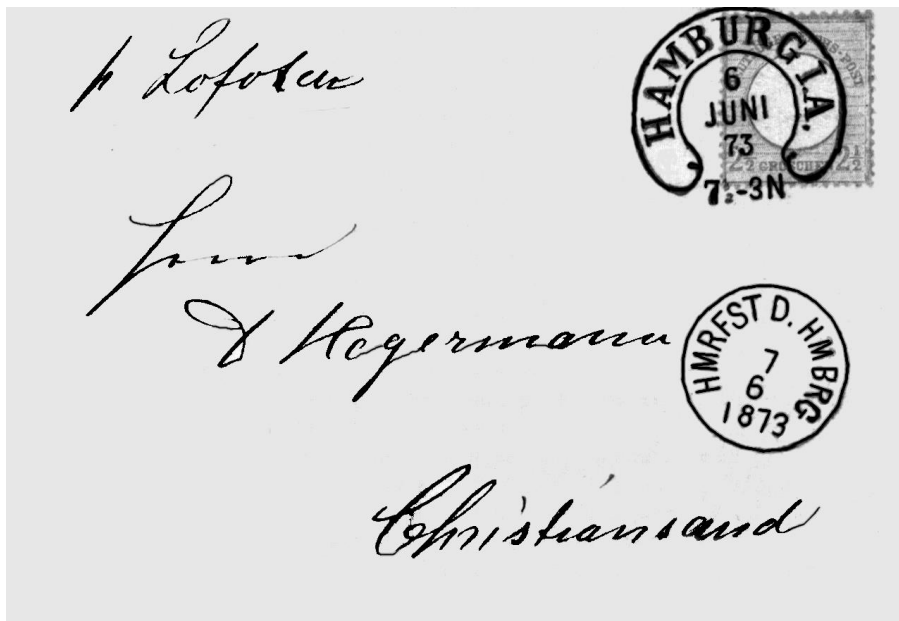 p Lofoten
HAMBURG I.A.
6
JUNI
73
2½ GROSCHEN 2½
Herrn
D Hagermann
HMRFST D. HMBRG
7
6
1873
Christiansand